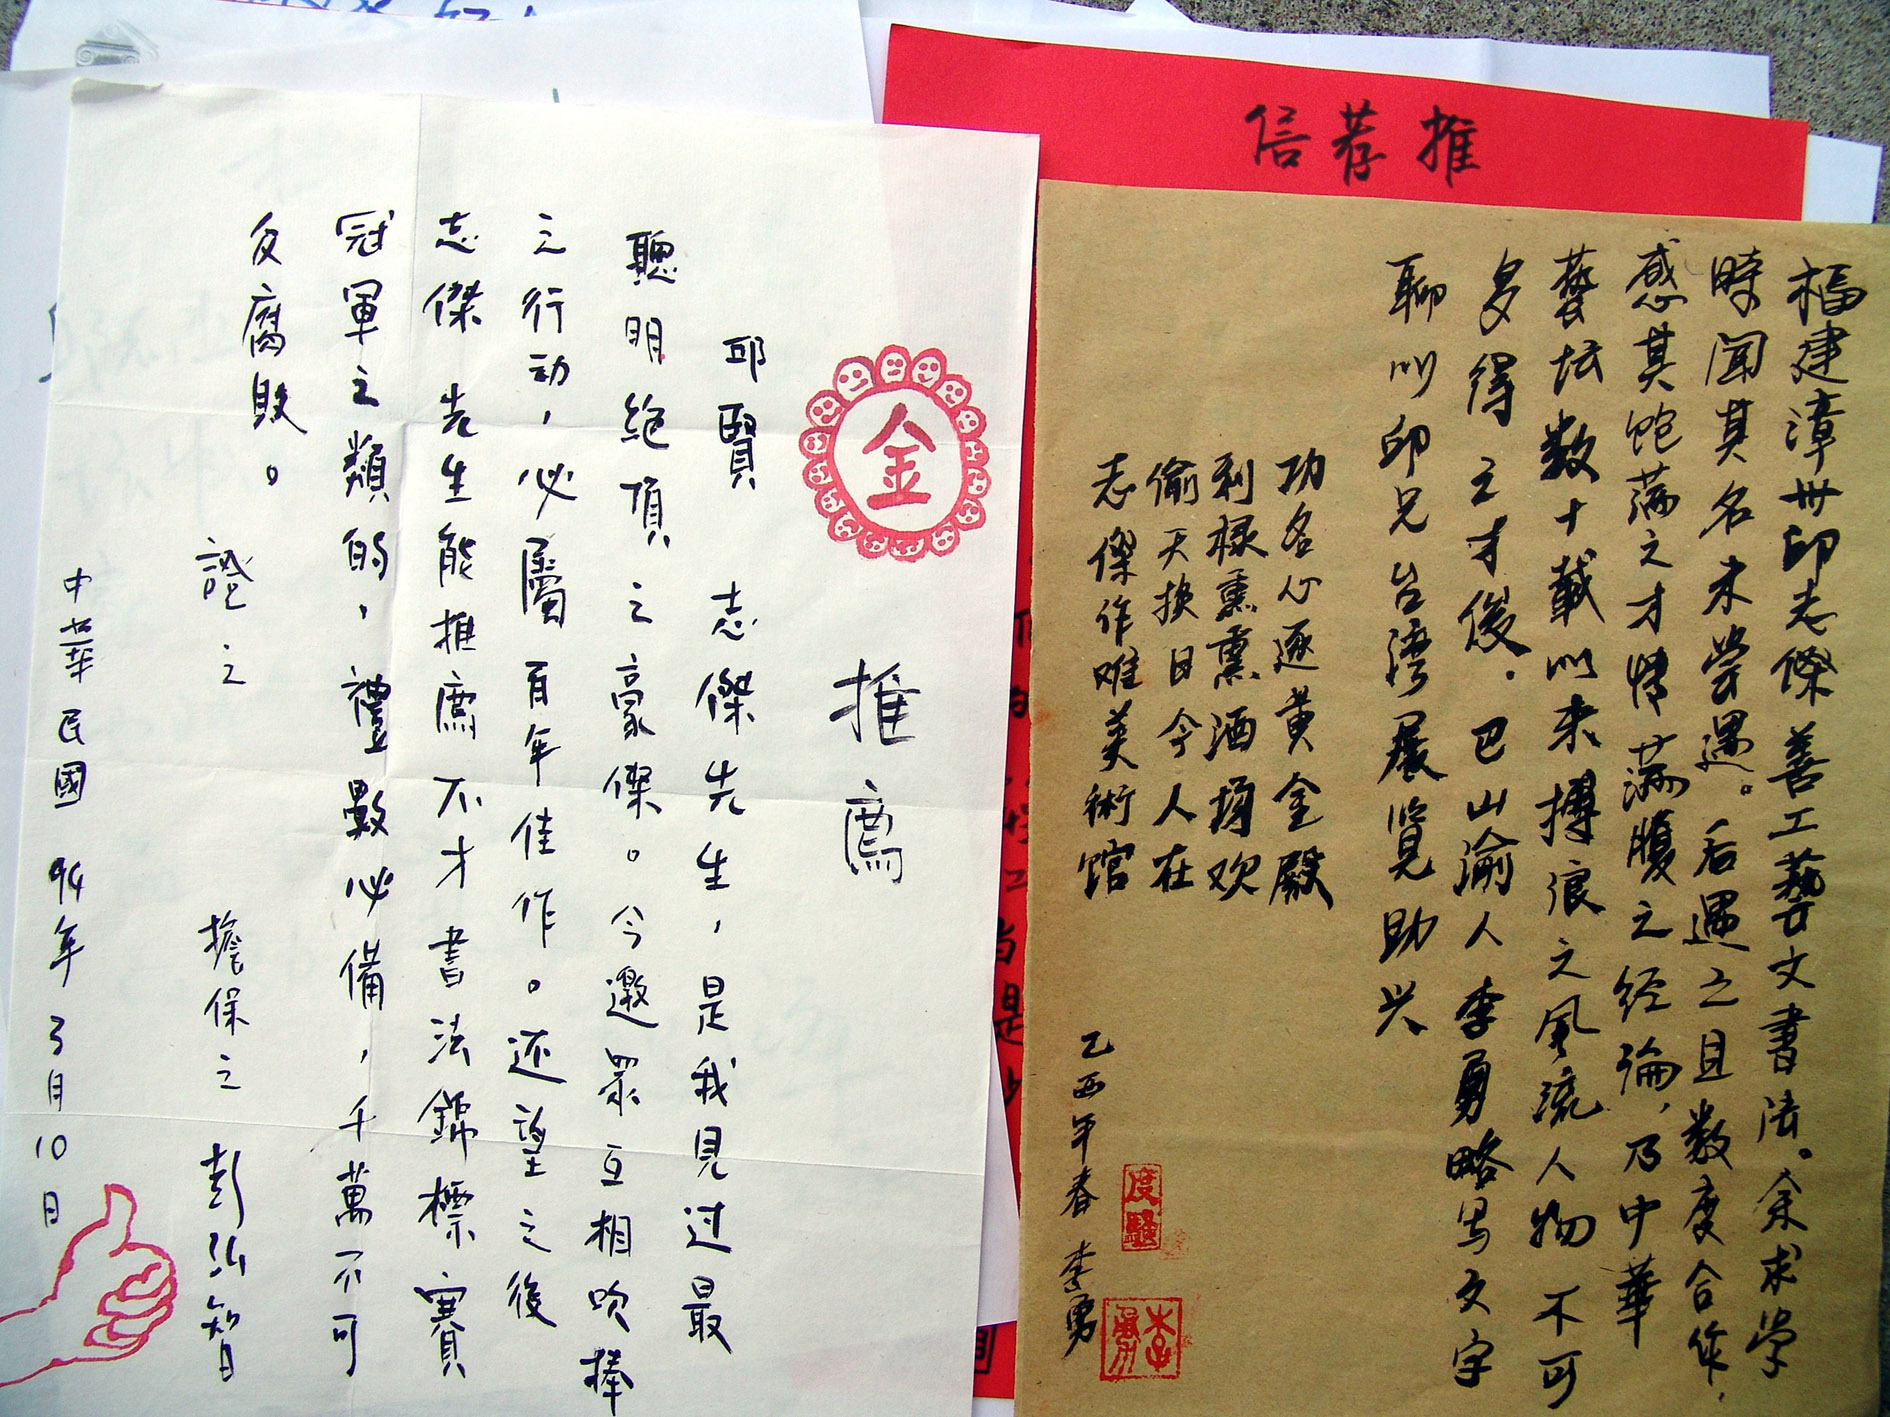 信荐推
福建漳州邱志傑善工藝文書法。余求学
時聞其名未嘗遇。后遇之且数度合作，
感其饱满之才情满腹之经論，乃中華
藝坛数十載以来搏浪之风流人物不可
多得之才俊．巴山渝人李勇略写文字
聊以邱兄台湾展览助兴
功名心逐黄金殿
利禄熏熏酒摶欢
偷天换日今人在
志傑作难美術馆
乙酉年春 李勇
李勇
金
推薦
邱賢 志傑先生，是我見过最
聰明絕頂之豪傑。今邀眾互相吹捧
之行动，必屬百年佳作。还望之後
志傑先生能推薦不才書法錦標賽
冠軍之類的，禮數必備，千萬不可
反腐敗。
證之 擔保之 彭弘智
中華民國 94年3月10日